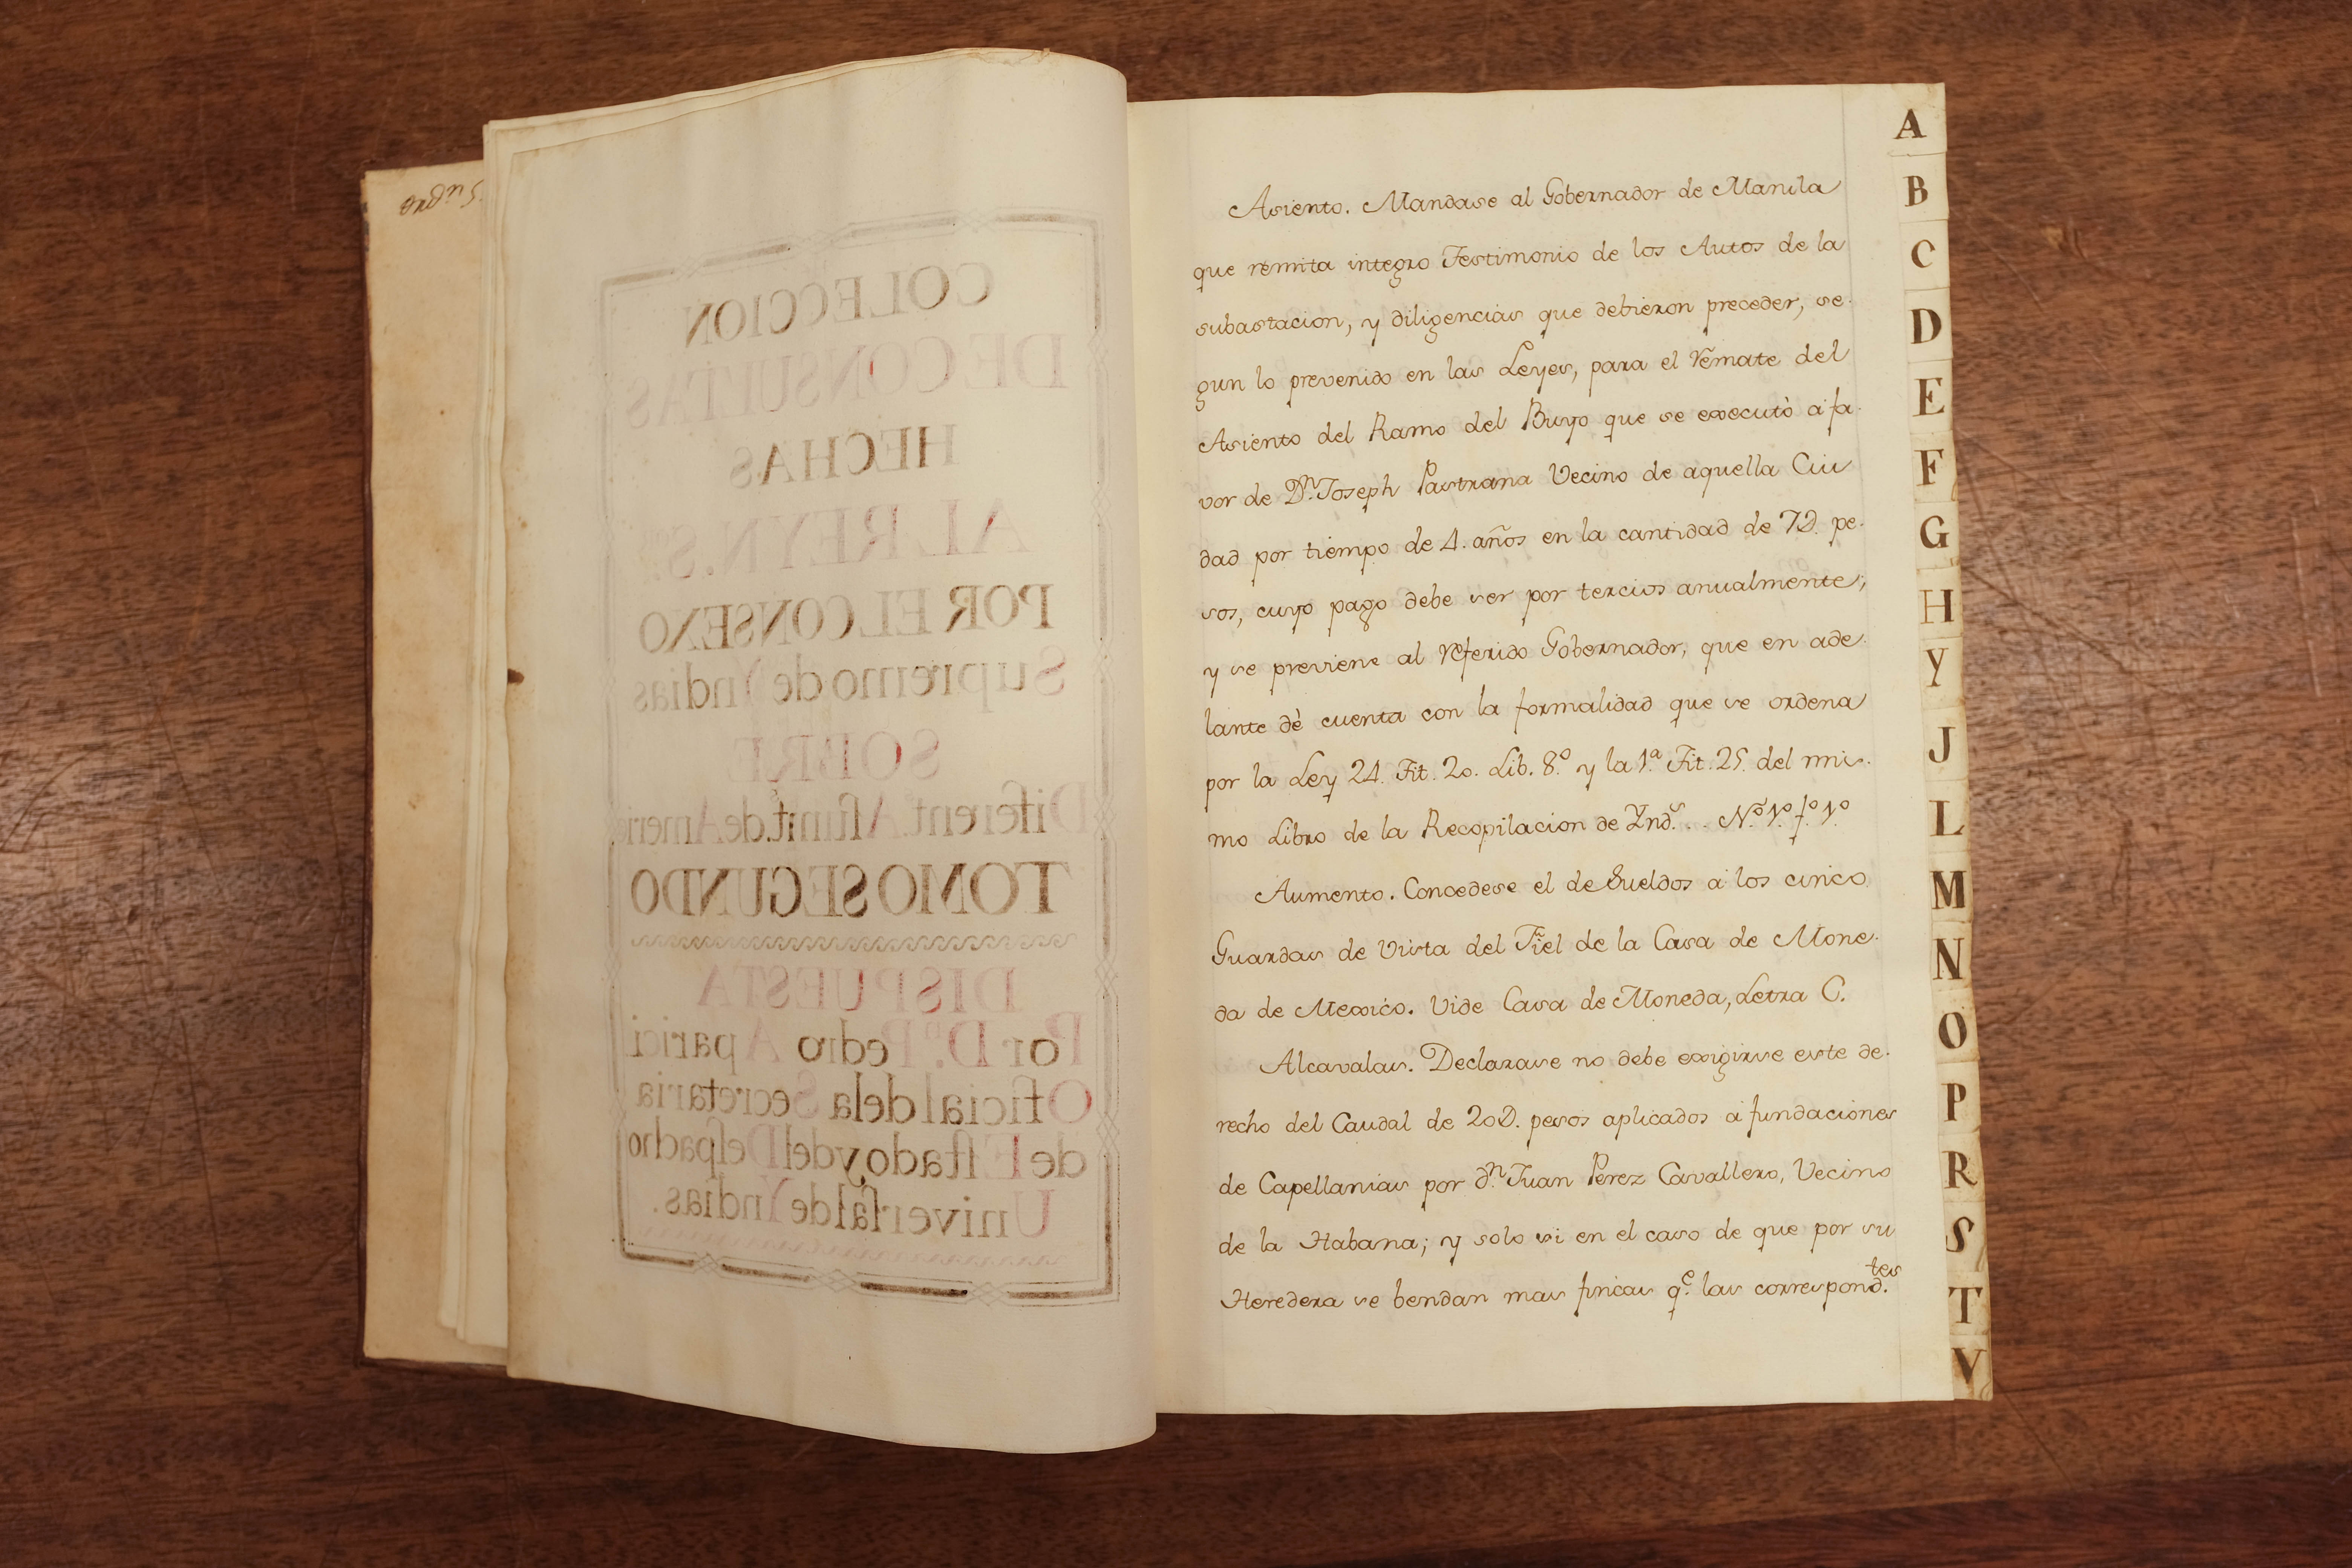 COLECCION
DE CONSULTAS
HECHAS
AL REY N. S.
POR EL CONSEXO
Supremo de Yndias
SOBRE
Diferent. Asunt. de Americ
TOMO SEGUNDO
DISPUESTA
Por D.n Pedro Aparici
Oficial de la Secretaria
de Estado y del Despacho
Universal de Yndias.
Asiento. Mandase al Gobernador de Manila
que remita integro Testimonio de los Autos de la
subastacion, y diligencias que debieron preceder, se-
gun lo prevenido en las Leyes, para el Remate del
Asiento del Ramo del Buyo que se executò a fa-
vor de D.n Joseph Pastrana Vecino de aquella Ciu
dad por tiempo de 4. años en la cantidad de 7D. pe-
sos, cuyo pago debe ser por tercios anualmente;
y se previene al referido Gobernador, que en ade-
lante dè cuenta con la formalidad que se ordena
por la Ley 24. Tit. 20. Lib. 8.º y la 1.ª Tit. 25. del mis-
mo Libro de la Recopilacion de Ynd.s . . Nº 1º fº 1º
Aumento. Concedese el de Sueldos a los cinco
Guardas de Vista del Fiel de la Casa de Mone-
da de Mexico. Vide Casa de Moneda, Letra C.
Alcavalas. Declarase no debe exigirse este de-
recho del Caudal de 20D. pesos aplicados a fundaciones
de Capellanias por d.n Juan Perez Cavallero, Vecino
de la Habana; y solo si en el caso de que por su
Heredera se bendan mas fincas q.e las correspond.tes
A
B
C
D
E
F
G
H
Y
J
L
M
N
O
P
R
S
T
V